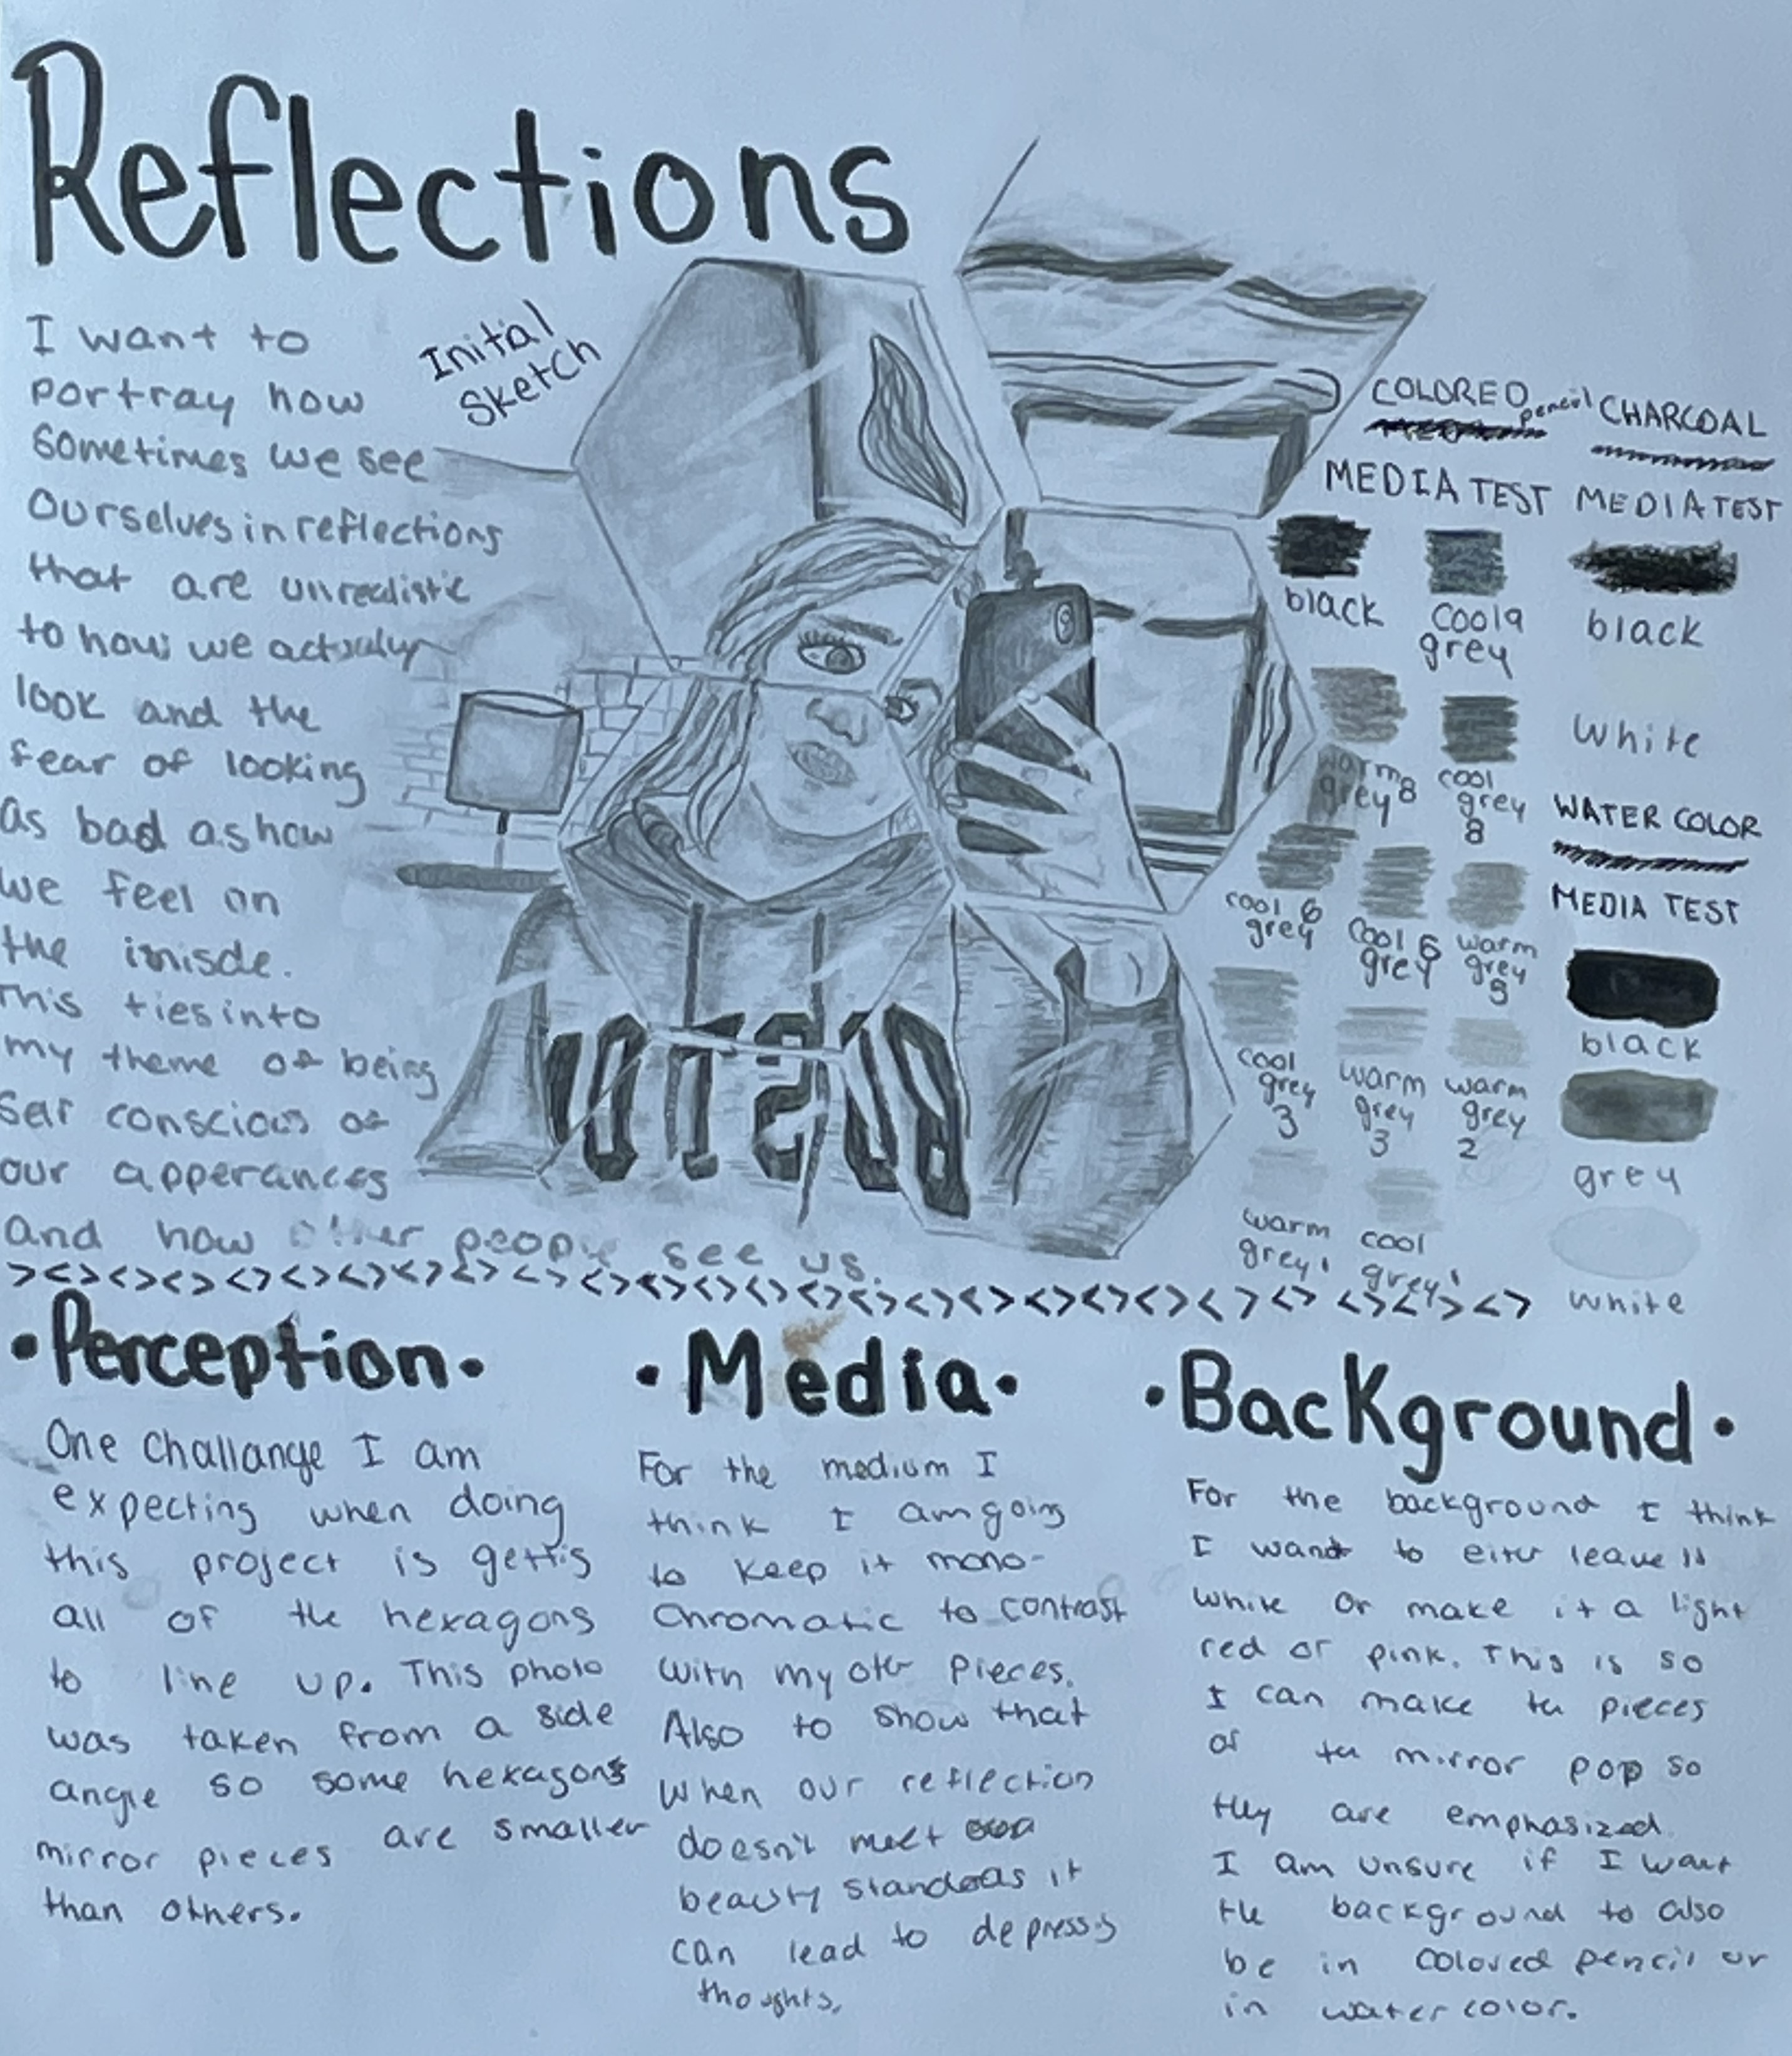 Reflections
I want to
portray how
sometimes we see
ourselves in reflections
that are unrealistic
to how we actualy
look and the
fear of looking
as bad as how
we feel on
the inisde.
This ties into
my theme of being
self conscious of
our apperances
and how other people see us.
Inital
Sketch
BOSTON
COLORED pencil
MEDIA TEST
black
cool 9
grey
warm 8
grey
cool
grey
8
cool 6
grey
cool 6
grey
warm
grey
5
cool
grey
3
warm
grey
3
warm
grey
2
warm
grey 1
cool
grey 1
CHARCOAL
MEDIA TEST
black
white
WATER COLOR
MEDIA TEST
black
grey
white
><><><><><><><><><><><><><><><><><><><><><><><><><><>
•Perception•
One challange I am
expecting when doing
this project is gettig
all of the hexagons
to line up. This photo
was taken from a side
angle so some hexagons
mirror pieces are smaller
than others.
•Media•
For the medium I
think I am going
to keep it mono-
chromatic to contrast
with my other pieces.
Also to show that
when our reflection
doesn't meet
beauty standards it
can lead to depressig
thoughts.
•Background•
For the background I think
I want to either leave it
white or make it a light
red or pink. This is so
I can make the pieces
of the mirror pop so
they are emphasized.
I am unsure if I want
the background to also
be in colored pencil or
in water color.